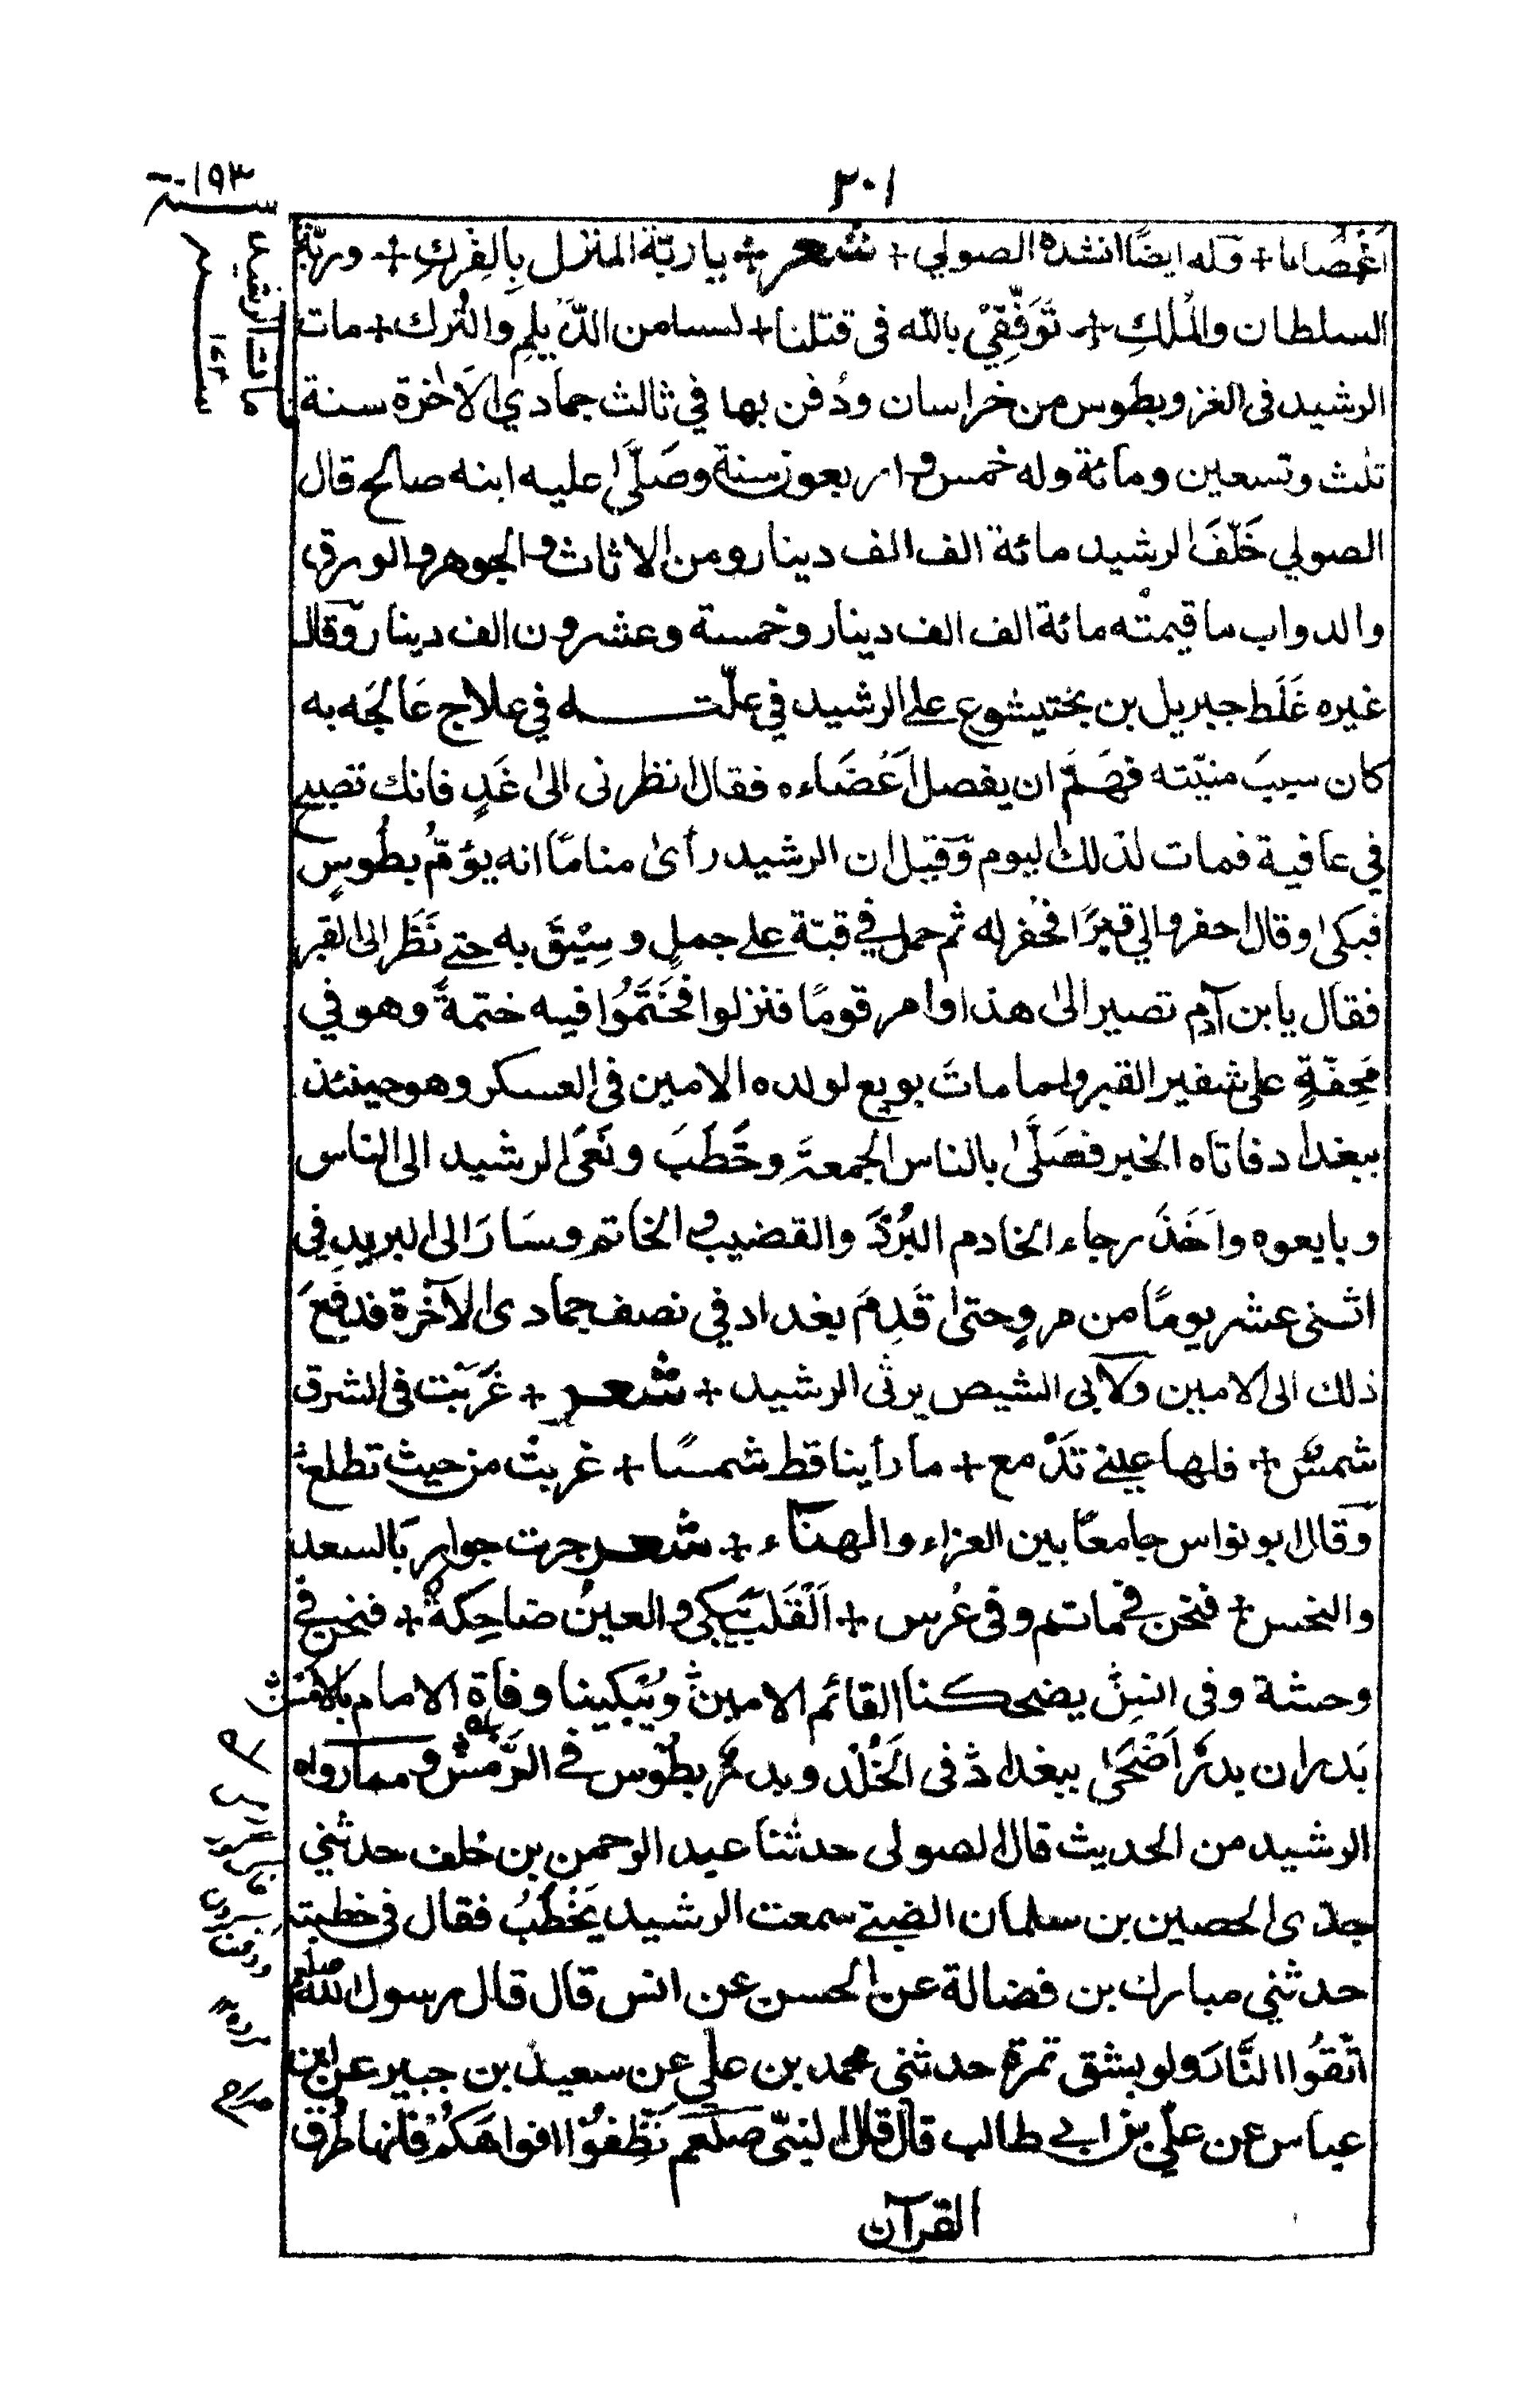 ٢٠١
سنة ١٩٣
اَغْصَانا + وله ايضًا انشده الصولي + شعر + يا ربّة المنزل بِالفِركِ + وربّة
السلطان والمُلكِ + تَوَفِّقِيْ بالله في قتلنا + لسنا من الدَّيلمِ والتُرك + مات
الرشيد فى الغزو بطوس من خراسان ودُفن بها في ثالث جمادي الاٰخرة سنة
ثلث وتسعين ومائة وله خمس واربعون سنة وصَلّىٰ عليه ابنه صالح قال
الصولي خَلّفَ الرشيد مائة الف الف دينار ومن الاثاث والجوهر والورق
والدواب ما قيمته مائة الف الف دينار وخمسة وعشرون الف دينار وقال
غيره غَلَط جبريل بن بختيشوع على الرشيد في علّته في علاج عَالجَه به
كان سببَ منيّته فهَمَّ ان يفصل اَعْضَاءه فقال انظرنى الىٰ غَدٍ فانك تصبح
في عافية فمات لذلك اليوم وقيل ان الرشيد رأىٰ منامًا انه يؤمُّ بطُوسٍ
فبكىٰ وقال احفروا لي قبرًا فحُفر له ثم حمل في قبّة على جملٍ وسِيْقَ به حتى نَظَر الى القبر
فقال يا بن آدم تصير الىٰ هذا وامر قومًا فنزلوا فخَتَمُوْا فيه ختمةً وهو في
مَحِفّةٍ على شفير القبر ولما ماتَ بويع لولده الامين فى العسكر وهو حينئذ
ببغداد فاتاه الخبر فصَلّىٰ بالناس الجمعةَ وخَطَبَ ونَعَى الرشيد الى الناس
وبايعوه واَخَذَ رجاء الخادم البُرْدَ والقضيب والخاتم وسَارَ الى البريد في
اثنى عشر يومًا من مروٍ حتىٰ قَدِمَ بغداد في نصف جمادى الآخرة فدفعَ
ذلك الى الامين ولابى الشيص يرثى الرشيد + شعر + غَرَبَتْ فى الشرق
شمسٌ + فلها عينى تَدْمع + ما رأينا قط شمسًا + غربتْ من حيث تطلعُ
وقال ابو نواس جامعًا بين العزاء والهناء + شعر جرت جوارٍ بَالسعد
والنحس + فنحن في ماتم وفى عُرس + اَلْقَلبُ يَبكى والعينُ ضاحِكةٌ + فنحن في
وحشة وفى انسِ يضحكنا القائم الامينُ ويُبْكينا وفاة الامام بالامس
بَدران بدرٌ اَضْحَىٰ ببغداد فى الخُلْد وبدرٌ بطُوْس في الرَّمْس ومما رواه
الرشيد من الحديث قال الصولى حدثنا عبد الرحمن بن خلف حدثني
جدّى الحصين بن سلمان الضبى سمعت الرشيد يَخْطُبُ فقال فى خطبته
حدثني مبارك بن فضالة عن الحسن عن انس قال قال رسول الله صلعم
اتّقُوا النَّارَ ولو بشق تمرةٍ حدثنى محمد بن علي عن سعيد بن جبير عن ابن
عباس عن علي بن ابي طالب قال قال النبىّ صلعم نَظِّفُوْا افواهَكُمْ فانّها طُرق
القرآن